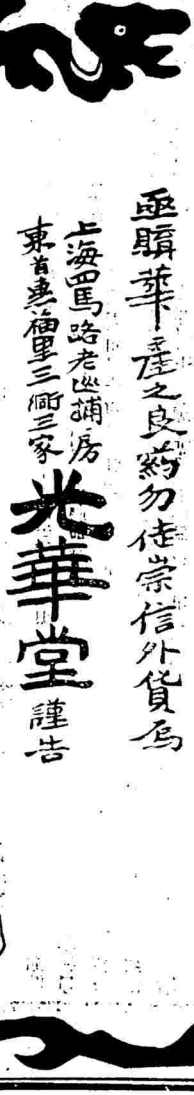 亟購華產之良葯勿徒崇信外貨焉
上海四馬路老巡捕房
東首惠福里三衖三家
光華堂謹告